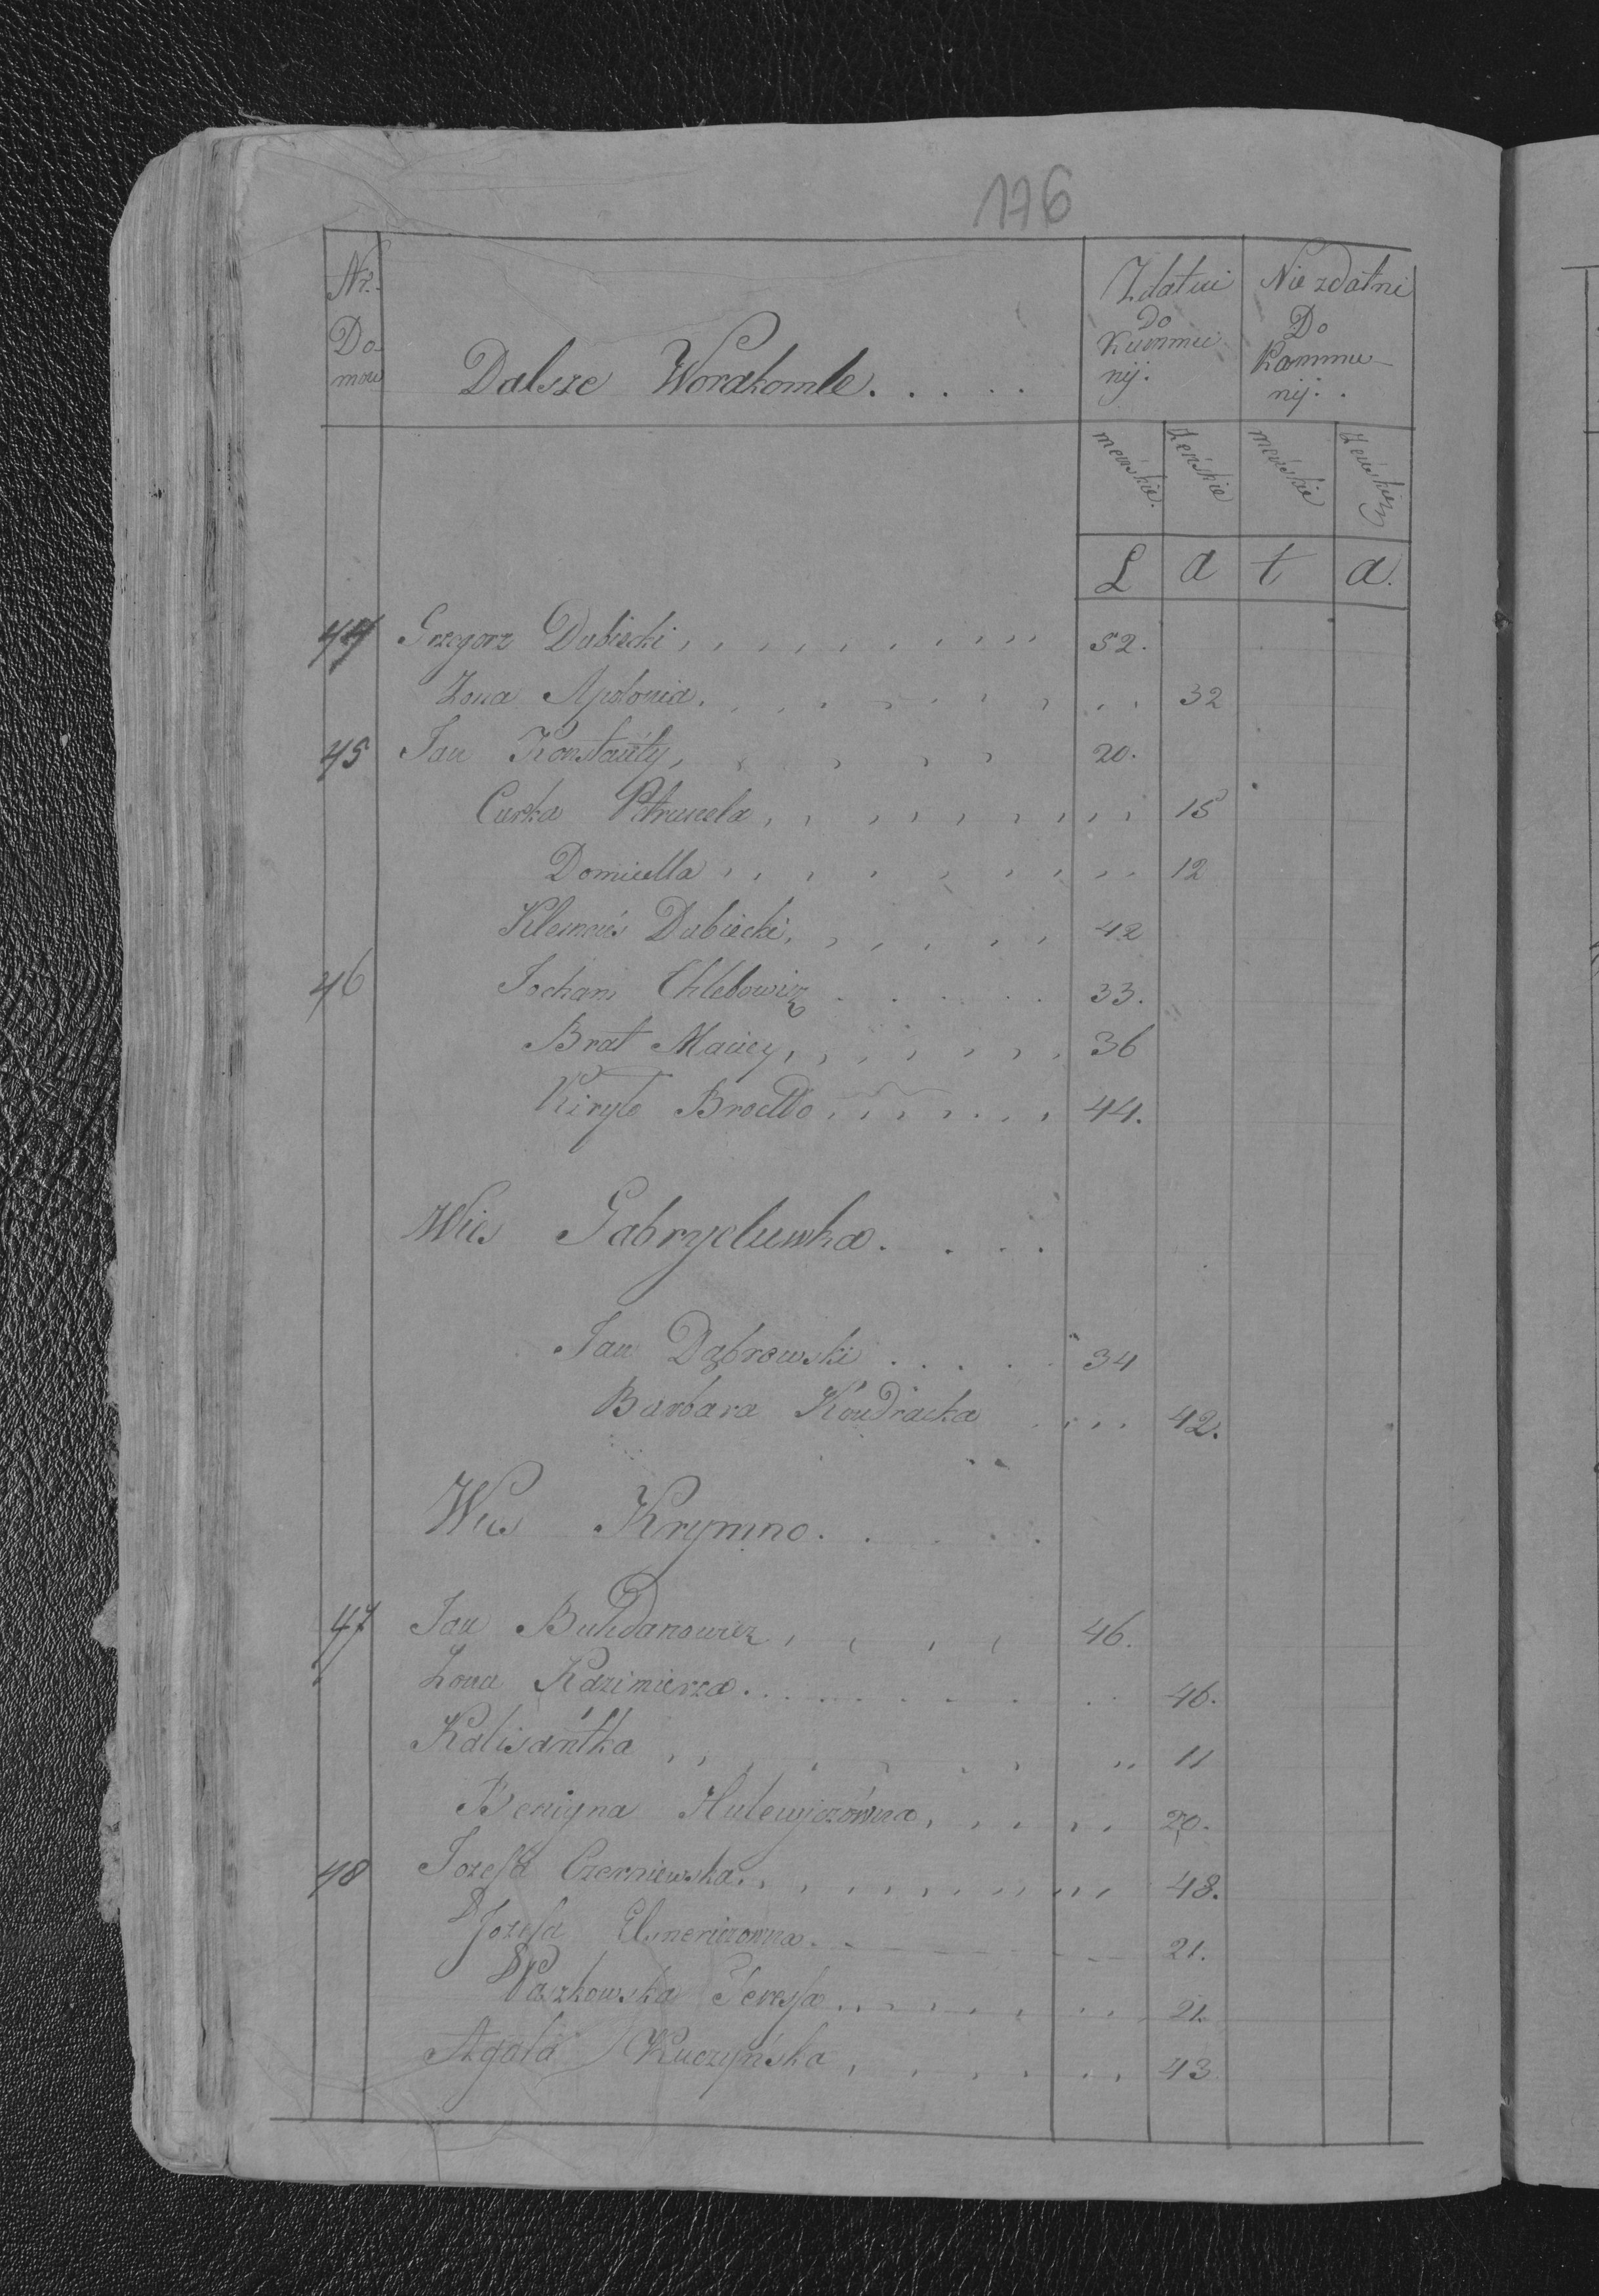 176
Nr. Do- mow
Dalsze Worokomle . . . . .
Zdatni do Kummu nij.
Nie zdatni Do Kommu- nij. .
męskie. żeńskie męskie żeńskie
L a t a.
44 Grzegorz Dubiecki 52.
Zona Apolonia. 32
45 Jan Konstanty, 20.
Curka Petrunela 15
Domicella 12
Klemens Dubiecki, 42
46 Jochani Chlebowicz 33.
Brat Maciey, 36
Kirylo 44.
Wies Gabryeluwka. . . . .
Jan Dąbrowski 34
Barbara Kondracka 42.
Wies Krymno. . . . .
47 Jan Buhdanowicz 46.
Zona Kazimierza. 46.
Kalisántka 11
Benigna Hulewjczówna, 20.
48 Jozefa Czerniewska. 48.
Jozefa 21.
Paszkowska Teressa 21.
Agata Kuczyńska, 43